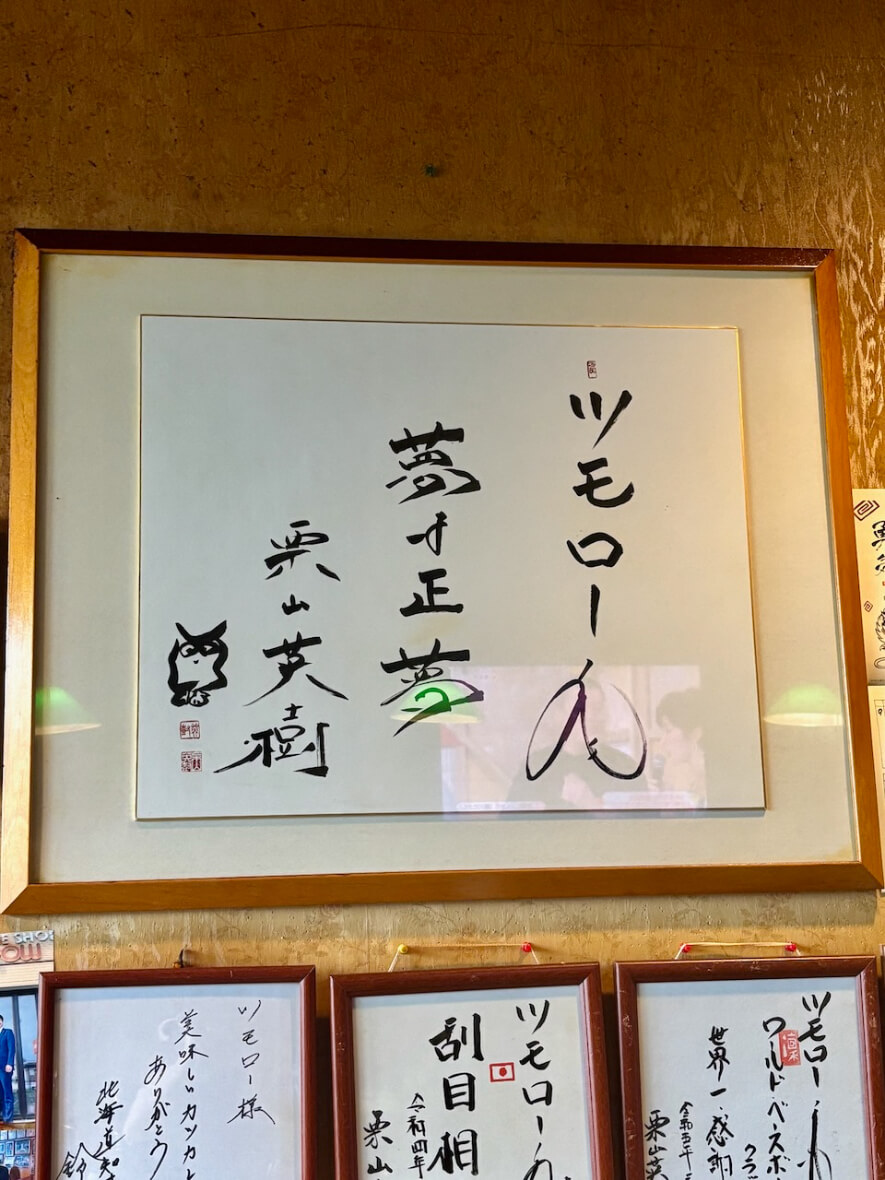 ツモローさん
夢は正夢
栗山英樹
ツモロー様
美味しいカツカレ
ありがとう
北海道知
鈴
ツモローさん
刮目相
令和四年
栗山
ツモローさん
ワールドベースボ
クラ
世界一感謝
令和五年三
栗山英
E SHO